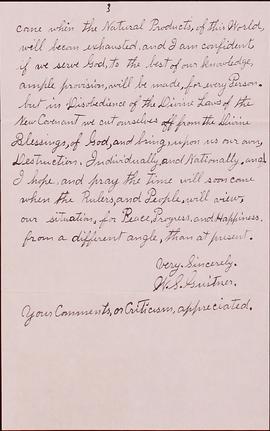 3
come when the Natural Products, of this World,
will becom exhausted, and I am confident
if we serve God, to the best of our knowledge,
ample provision, will be made, for every Person.
but in Disobedience of the Divine Laws of the
New Covenant we cut ourselves off from the Divine
Blessings, of God, and bring, upon us our own,
Destruction. Individually, and Nationally, and
I hope, and pray the time will soon come
when the Rulers, and People, will view,
our situation, for Peace, Progress, and Happiness.
from a different angle, than at present.
Very. Sincerely.
W. S. Guitner.
Your Comments, or Criticism, appreciated.